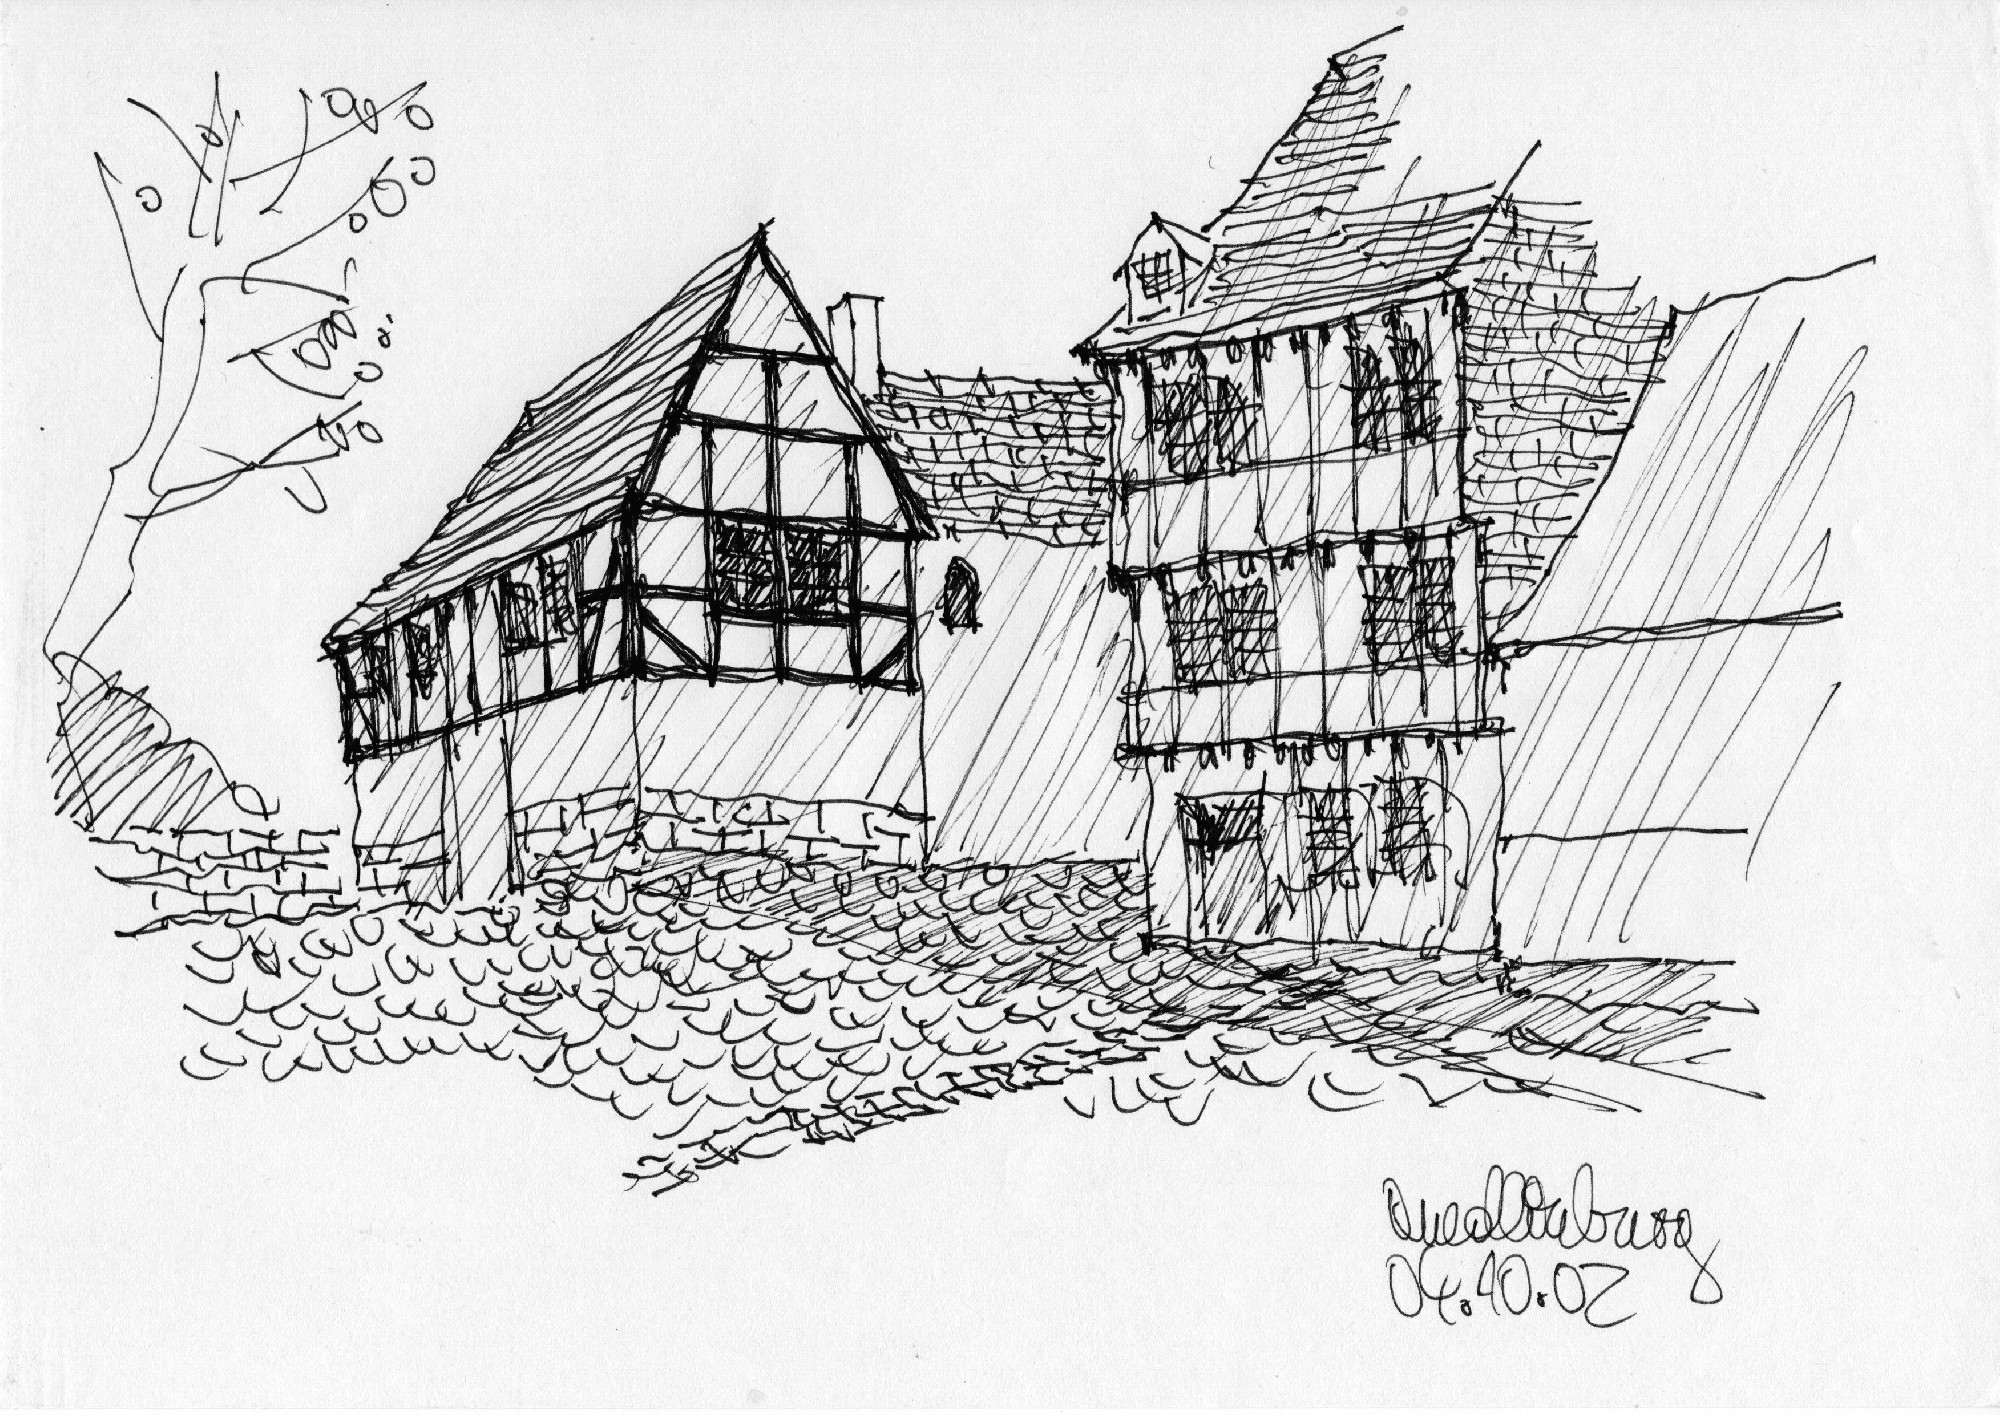 Quedlinburg
04.10.02